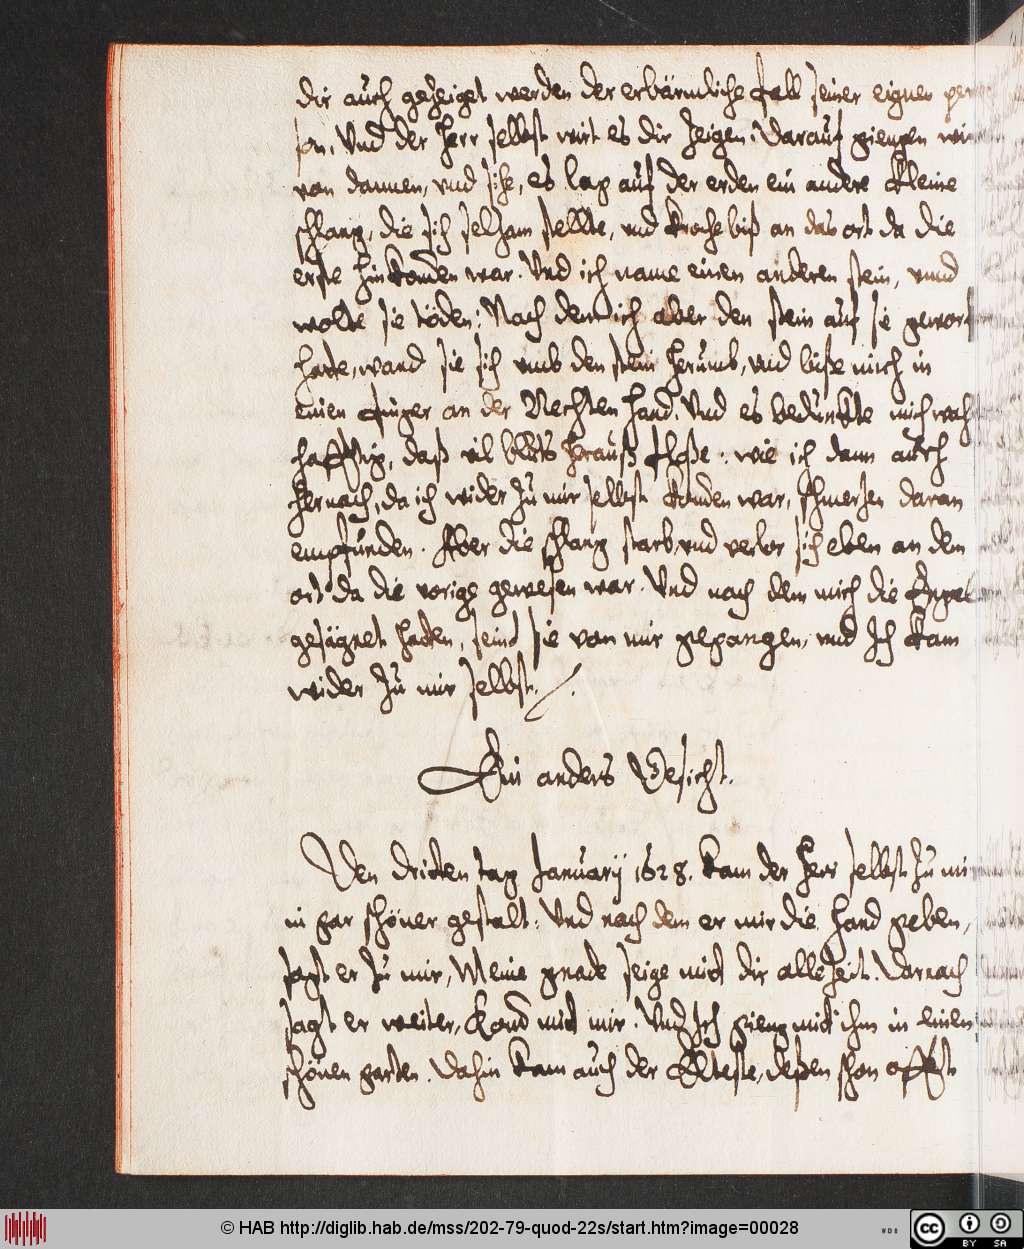 dir auch gezeiget werden der erbärmliche fall seiner eignen per
son, Und der Herr selbst wirt es dir zeigen: Darauf giengen wir
von dannen, und sihe, es lag auf der erden ein andere kleine
schlang, die sich selzam stellte, und kroche biß an das ort da die
erste hin komen war. Und ich name einen anderen stein, vnnd
wolte sie töden: Nach dem ich aber den stein auf sie gewor
hatte, wand sie sich umb den stein herumb, und bisse mich in
einen finger an der Rechten hand. Und es bedunkte mich war
hafftig, daß vil bluts herauß flosse: wie ich dann auch
hernach, da ich wider zu mir selbst komen war, schmerzen daran
empfunden. Aber die schlang starb, und verlor sich eben an dem
ort da die vorige gewesen war. Und nach dem mich die Engel
gesägnet hatten, seind sie von mir gegangen, und Ich kam
wider zu mir selbst.
Ein anders Gesicht.
Den dritten tag Januarij 1628. kam der Herr selbst zu mir
in gar schöner gestalt: Und nach dem er mir die hand geben,
sagt er zu mir, Meine gnade seige mit dir allezeit. Darnach
sagt er weiter, Kom mit mir. Und Ich gieng mit ihm in einen
schönen garten. Dahin kam auch der Elteste, dessen schon offt
© HAB http://diglib.hab.de/mss/202-79-quod-22s/start.htm?image=00028
WDB
cc BY SA